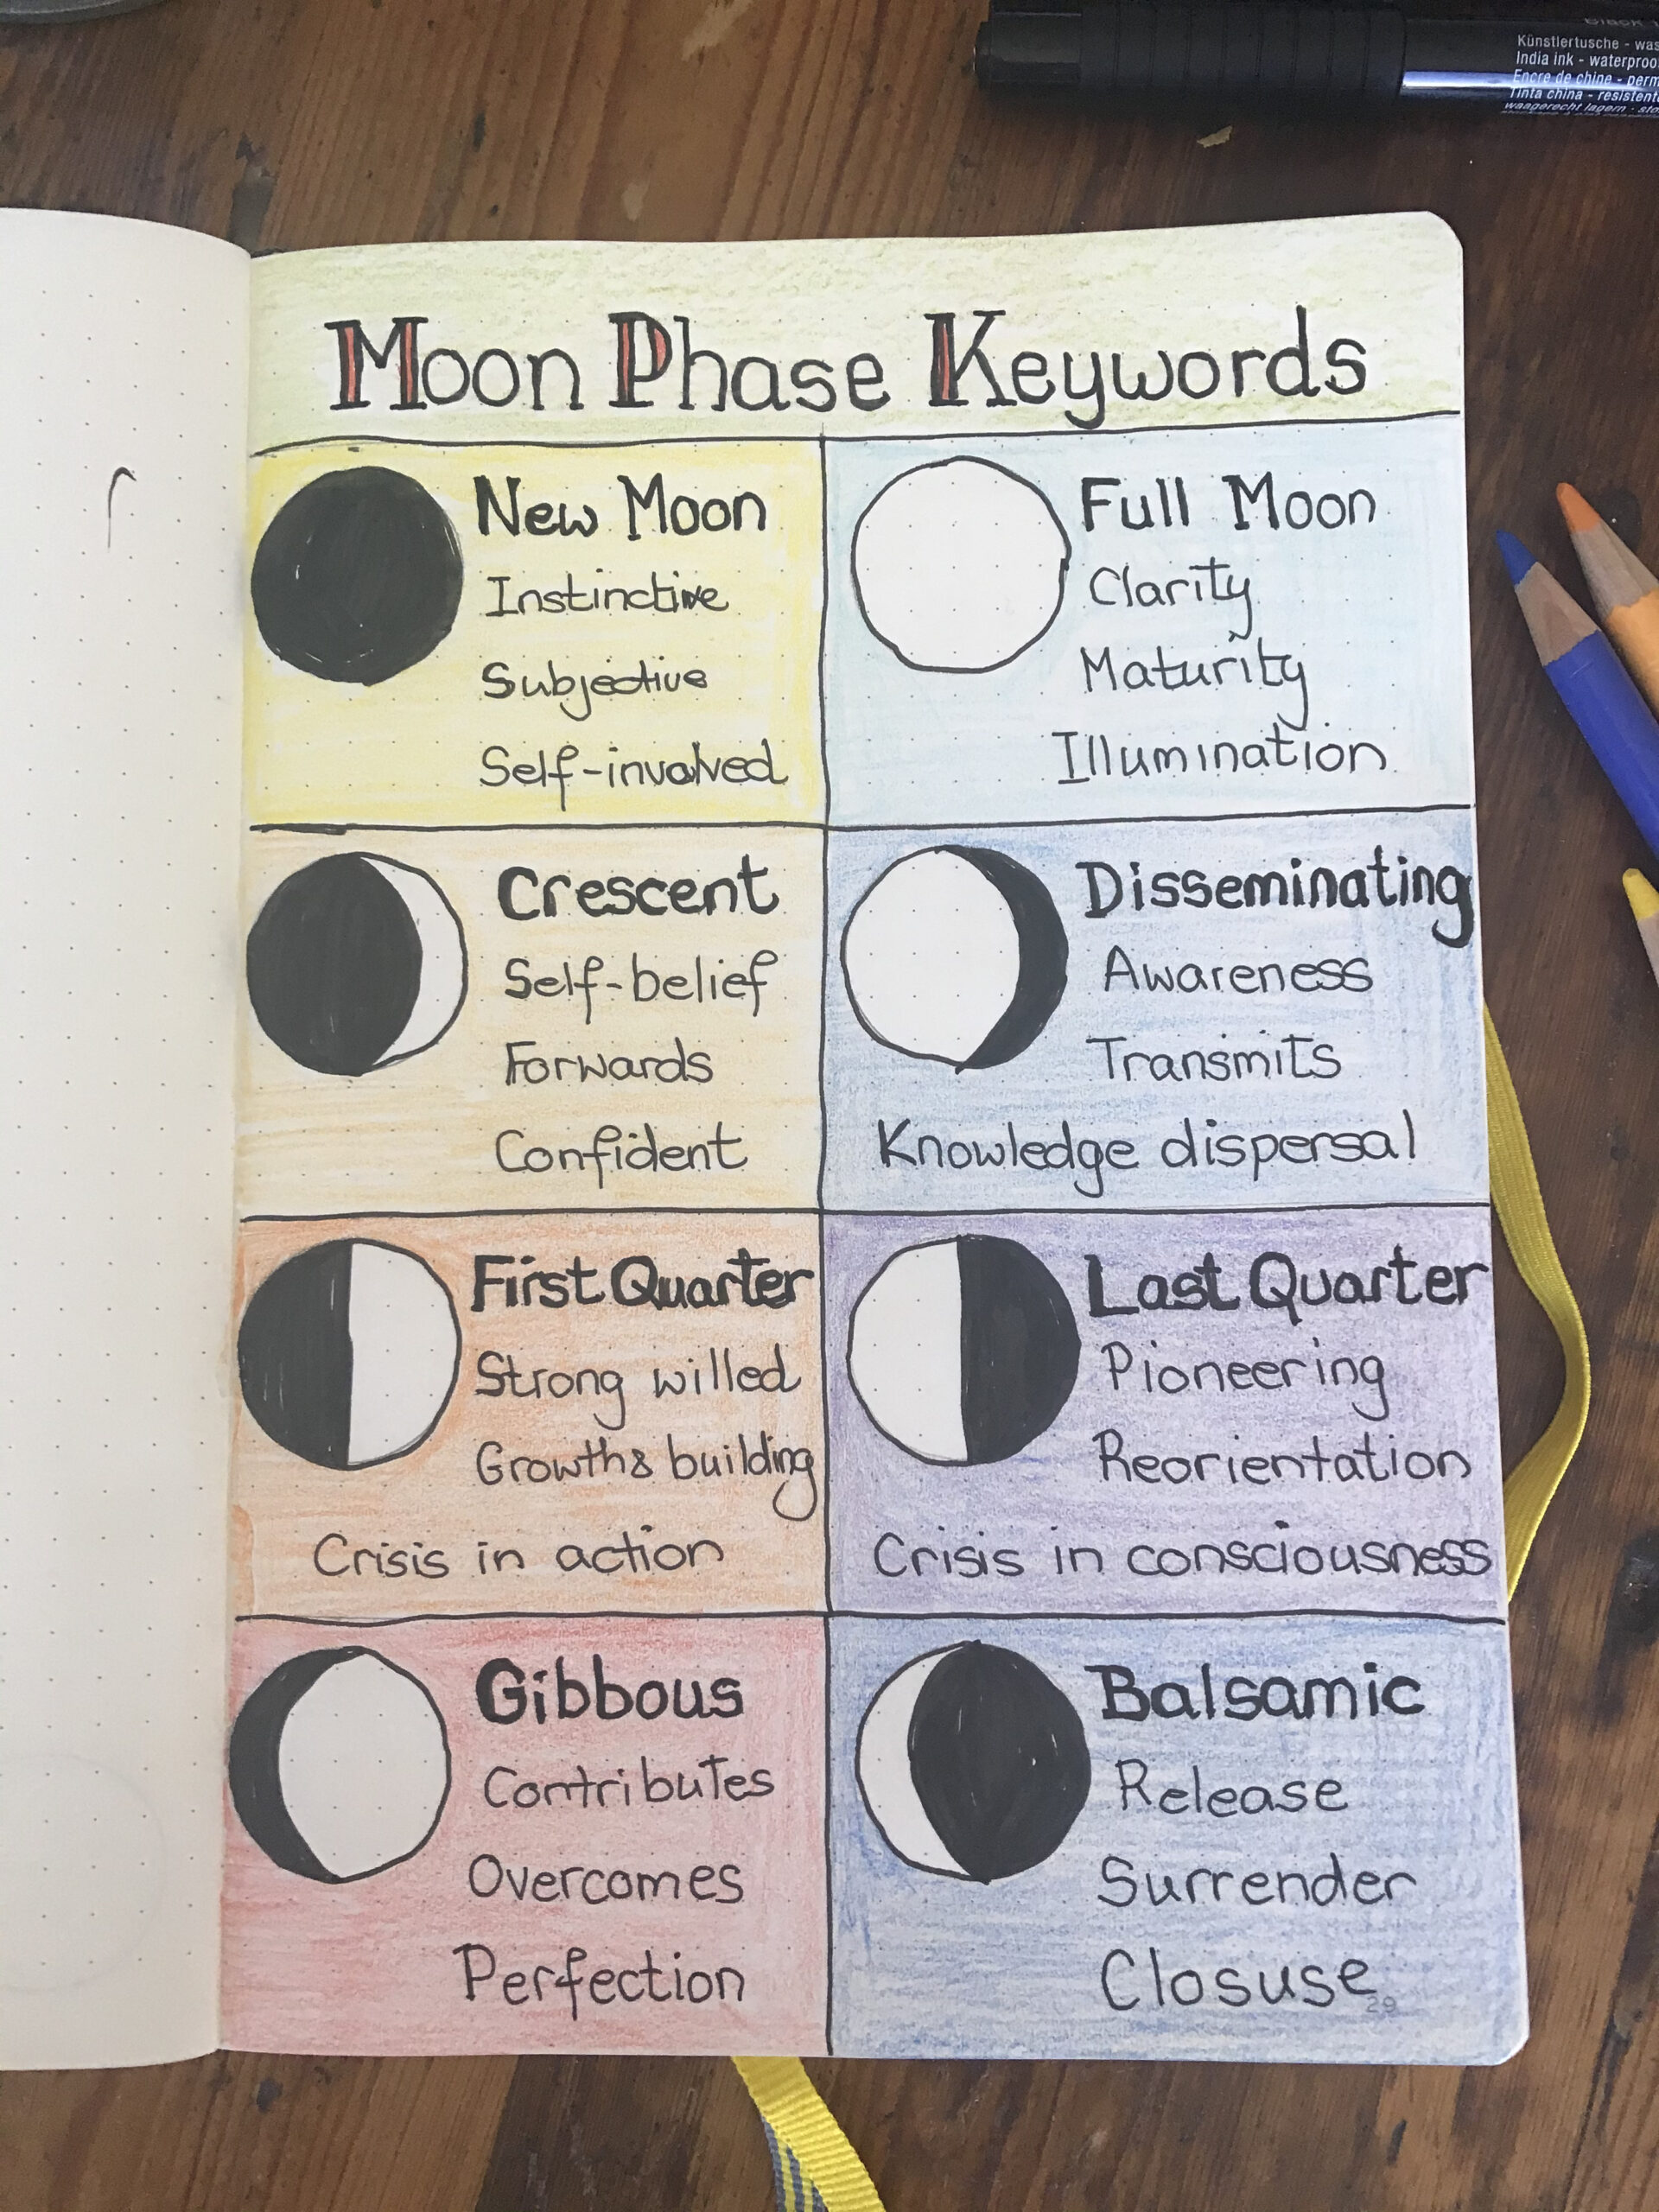 Black
Künstlertusche - was
India ink - waterproo
Encre de chine - perm
Tinta china - resistent
waagerecht lagern - sto
Moon Phase Keywords
New Moon
Instinctive
Subjective
Self-involved
Full Moon
Clarity
Maturity
Illumination
Crescent
Self-belief
Forwards
Confident
Disseminating
Awareness
Transmits
Knowledge dispersal
First Quarter
Strong willed
Growth & building
Crisis in action
Last Quarter
Pioneering
Reorientation
Crisis in consciousness
Gibbous
Contributes
Overcomes
Perfection
Balsamic
Release
Surrender
Closuse
29